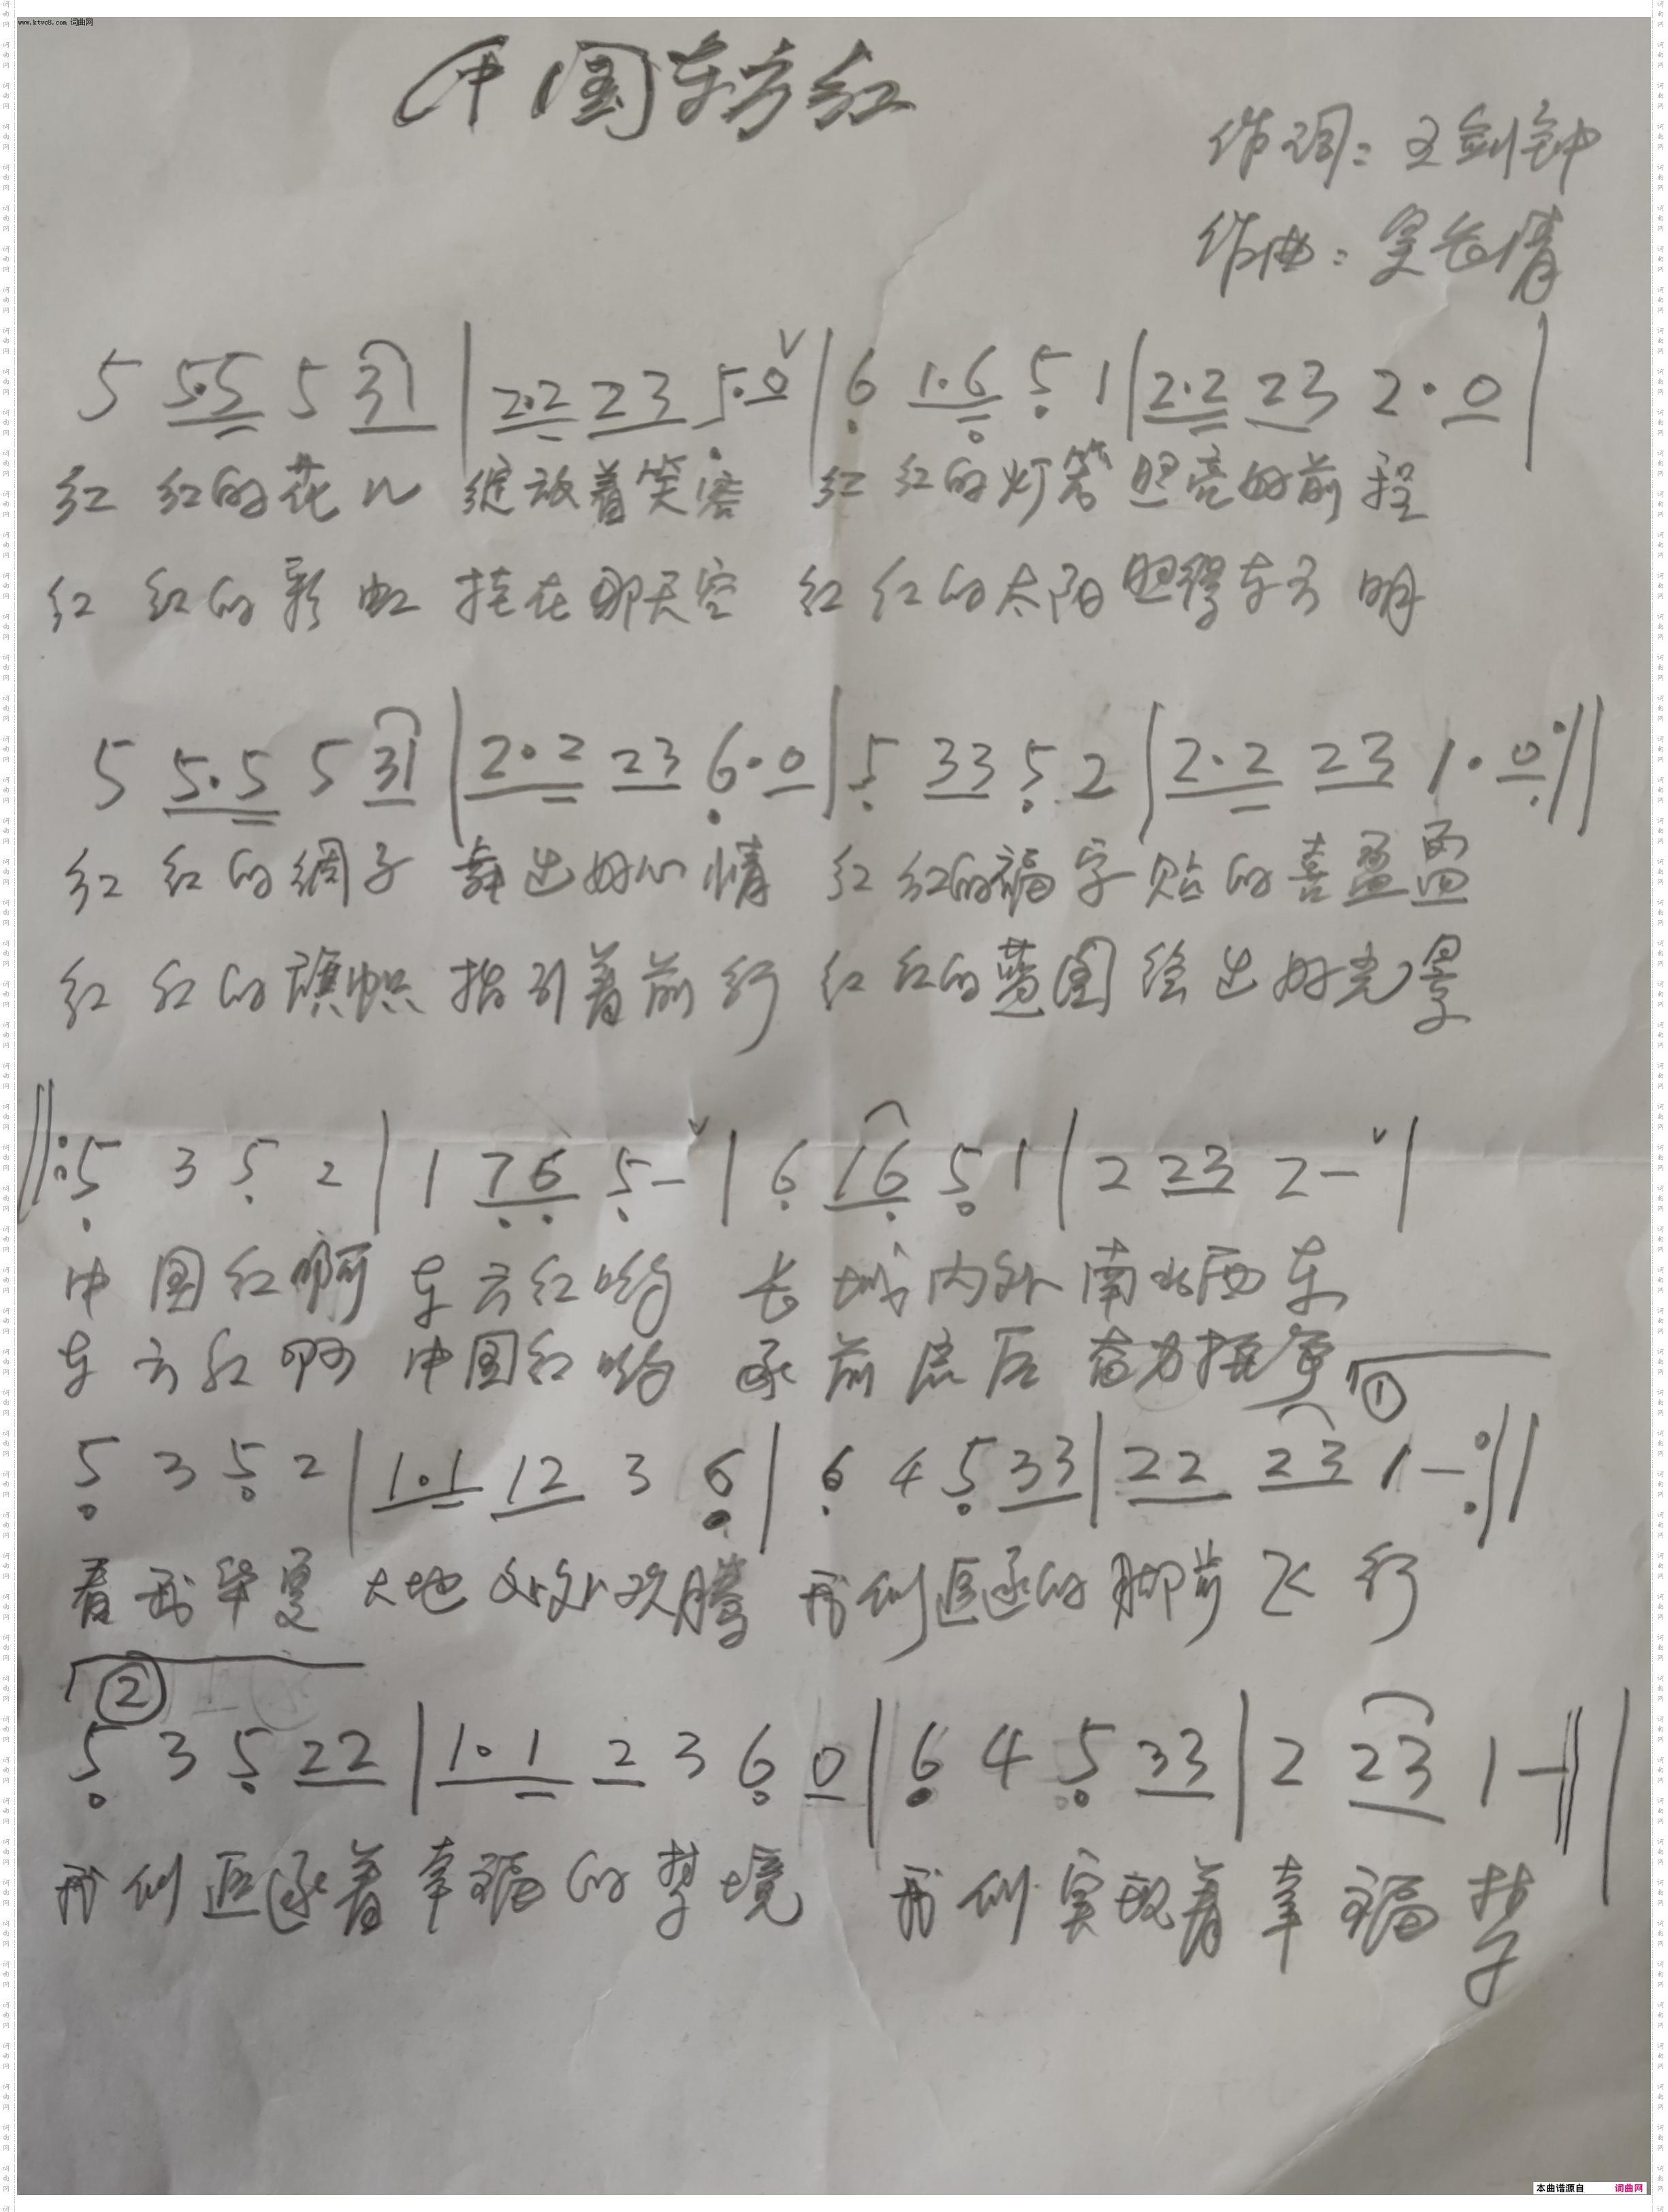 www.ktvc8.com 词曲网
中国东方红
作词：王剑钟
作曲：吴长情
5 5.5 5 31 | 2.2 23 5.0 | 6 1.6 5 1 | 2.2 23 2.0 |
红 红的花儿 绽放着笑容 红 红的灯笼 照亮的前程
红 红的彩虹 挂在那天空 红 红的太阳 照得东方明
5 5.5 5 31 | 2.2 23 6.0 | 5 33 5 2 | 2.2 23 1.0 :||
红 红的绸子 舞出好心情 红 红的福字 贴的喜盈盈
红 红的旗帜 指引着前行 红 红的蓝图 绘出好光景
||: 5 3 5 2 | 1 76 5 - | 6 16 5 1 | 2 23 2 - |
中国红啊 东方红哟 长城内外 南北西东
东方红啊 中国红哟 承前启后 奋力振争
①
5 3 5 2 | 1.1 12 3 6 | 6 4 5 33 | 22 23 1 - :||
看我华夏 大地 欢腾 我们追逐的脚步飞行
②
5 3 5 22 | 1.1 2 3 6 0 | 6 4 5 33 | 2 23 1 - ||
我们追逐着幸福的梦境 我们实现着幸福梦
本曲谱源自 词曲网